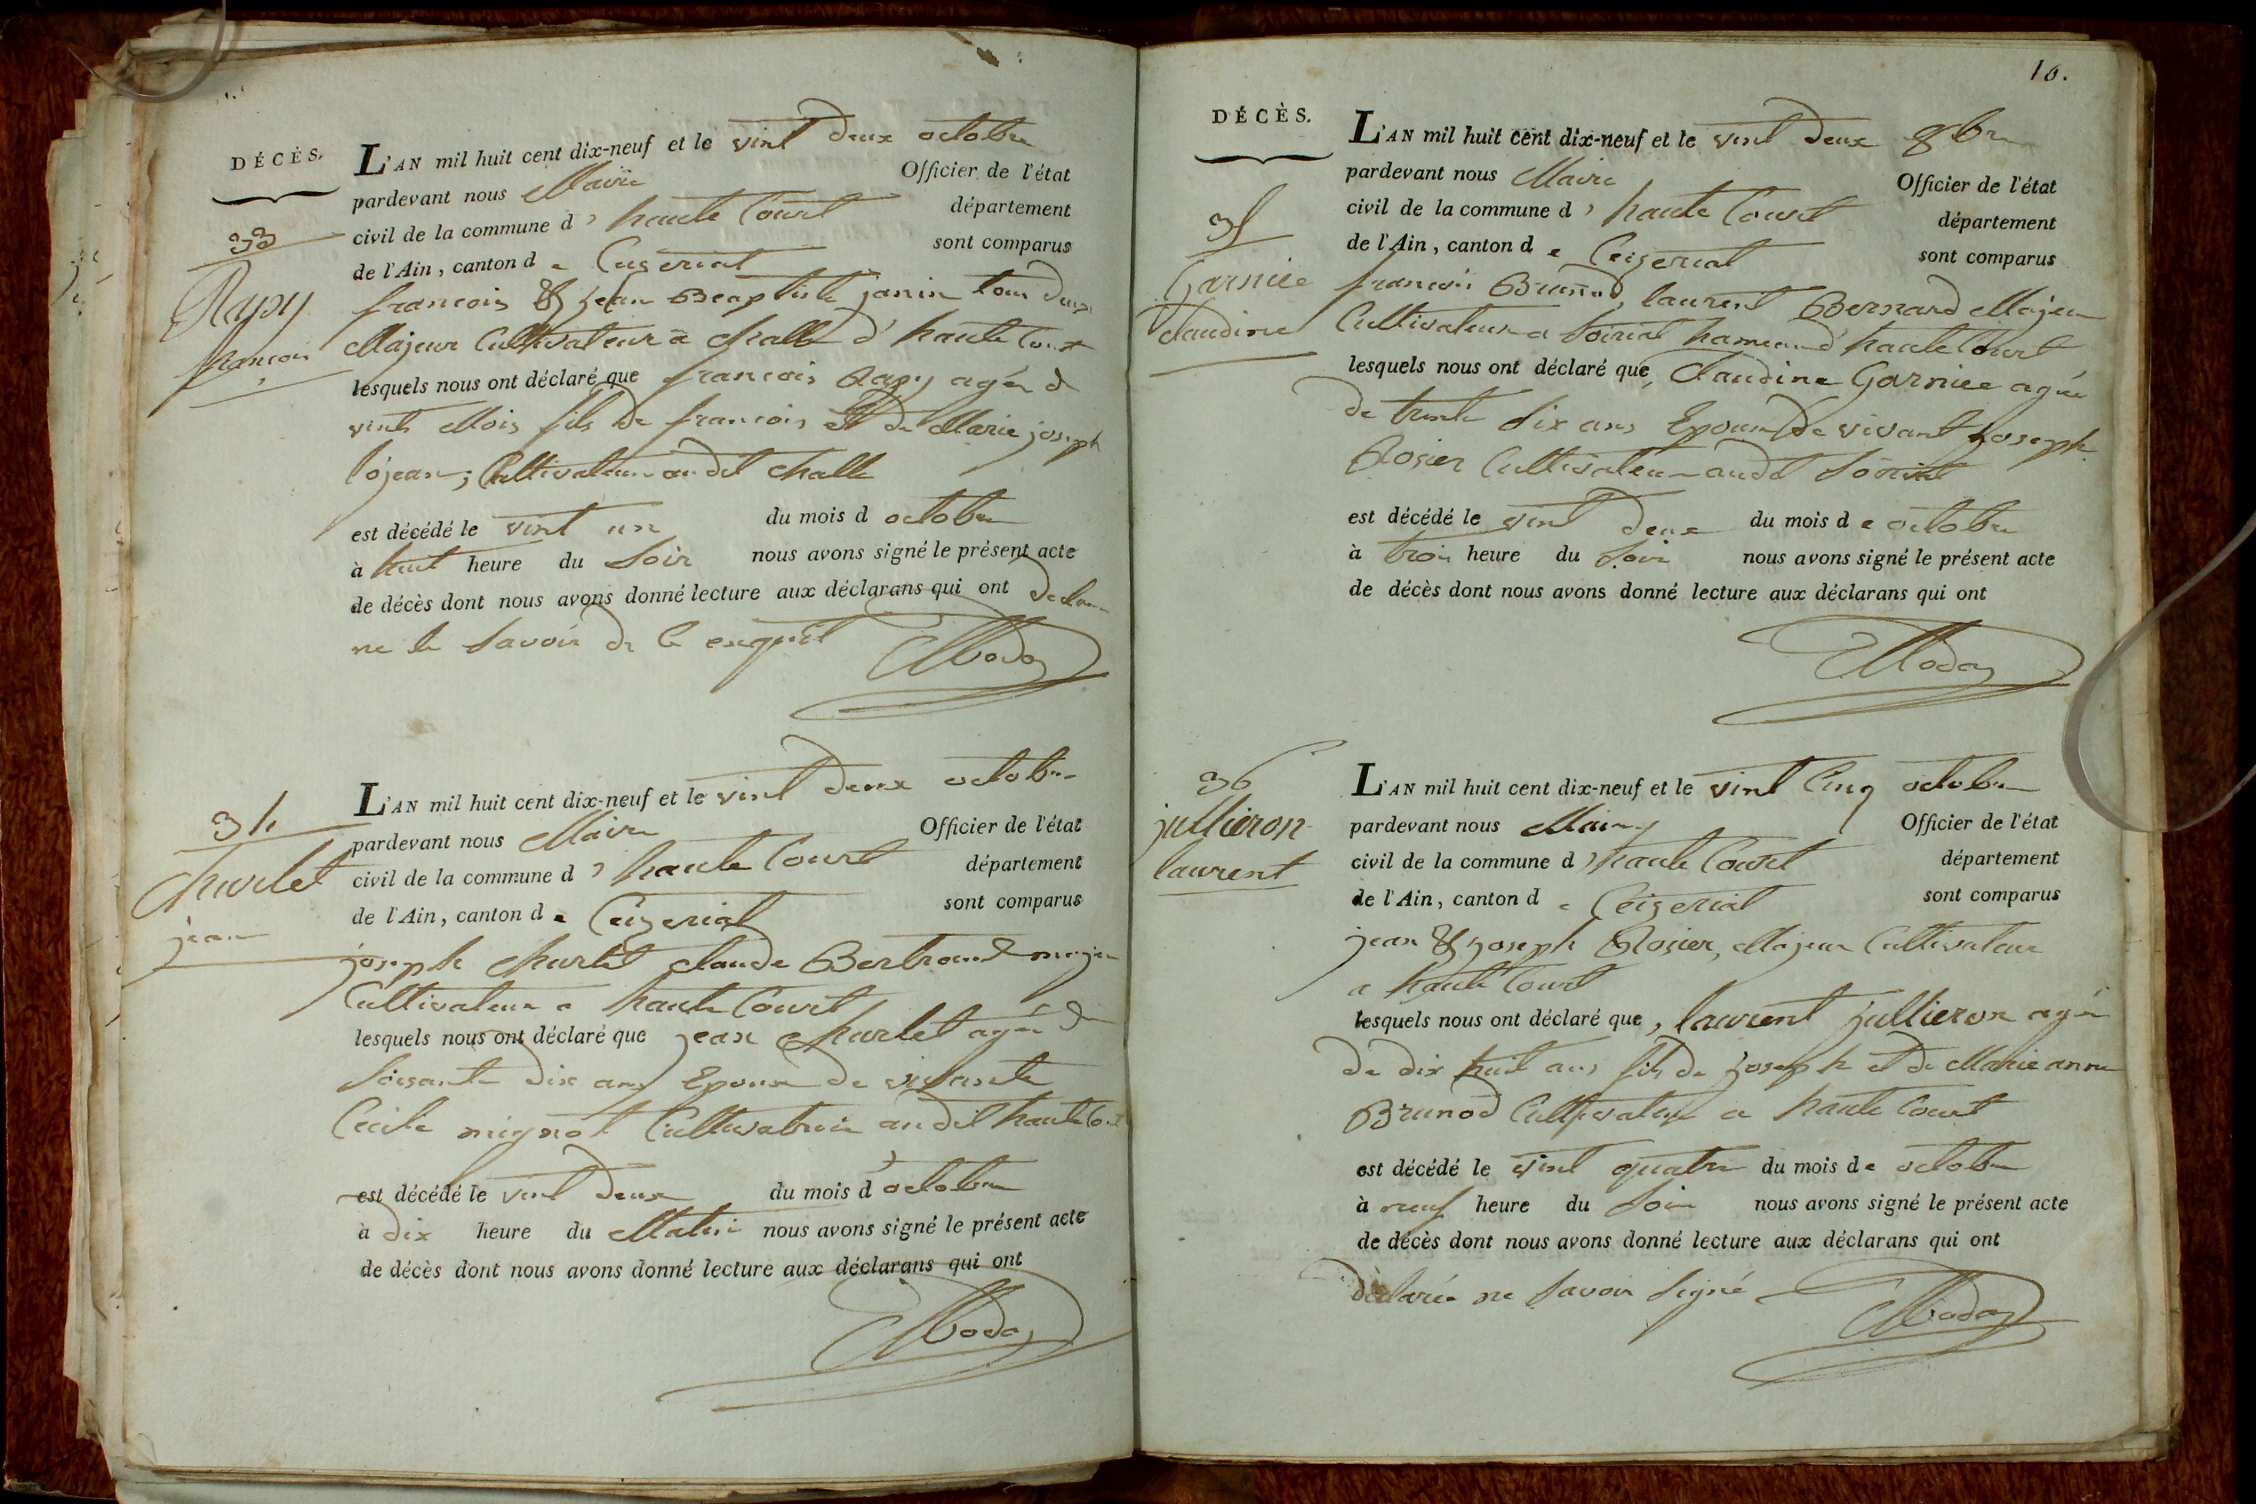 DÉCÈS.
33
Rapy
françois
L'AN mil huit cent dix-neuf et le vint deux octobre
pardevant nous Maire Officier de l'état
civil de la commune d' haute Court département
de l'Ain, canton de Ceizeriat sont comparus
francois & jean Beaptiste janin tous deux
Majeur Cultivateur a challe d'haute Court
lesquels nous ont déclaré que francois Rapy agée de
vints Mois fils de francois et de Marie joseph
lojean; Cultivateur au dit challe
est décédé le vint un du mois d octobre
à huit heure du Soir nous avons signé le présent acte
de décès dont nous avons donné lecture aux déclarans qui ont
ne le Savoir de ce enquit
34
Churlet
jean
L'AN mil huit cent dix-neuf et le vint deux octobre
pardevant nous Maire Officier de l'état
civil de la commune d' haute Court département
de l'Ain, canton de Ceizeriat sont comparus
joseph churlet claude Bertrand majeur
Cultivateur a haute Court
lesquels nous ont déclaré que jean churlet agée de
soisante dix ans Epoux de vivante
Cecile mignot Cultivatrice au dit haute Court
est décédé le vint deux du mois d'octobre
à dix heure du Matin nous avons signé le présent acte
de décès dont nous avons donné lecture aux déclarans qui ont
16.
DÉCÈS.
35
Garnier
claudine
L'AN mil huit cent dix-neuf et le vint deux 8bre
pardevant nous Maire Officier de l'état
civil de la commune d' haute Court département
de l'Ain, canton de Ceizeriat sont comparus
francois Brunod, laurent Bernard Majeur
Cultivateur a hameau d'haute Court
lesquels nous ont déclaré que, Claudine Garnier agée
de trente Six ans Epouse de vivant joseph
Rosier Cultivateur au dit
est décédé le vint deux du mois de octobre
à trois heure du Soir nous avons signé le présent acte
de décès dont nous avons donné lecture aux déclarans qui ont
36
jullieron
laurent
L'AN mil huit cent dix-neuf et le vint Cinq octobre
pardevant nous Maire Officier de l'état
civil de la commune d' haute Court département
de l'Ain, canton de Ceizeriat sont comparus
jean & joseph Rosier, Majeur Cultivateur
a haute Court
lesquels nous ont déclaré que, laurent jullieron agée
de dix huit ans fils de joseph et de Marie anne
Brunod Cultivateur a haute Court
est décédé le vint quatre du mois de octobre
à neuf heure du Soir nous avons signé le présent acte
de décès dont nous avons donné lecture aux déclarans qui ont
déclarée ne Savoir Signé